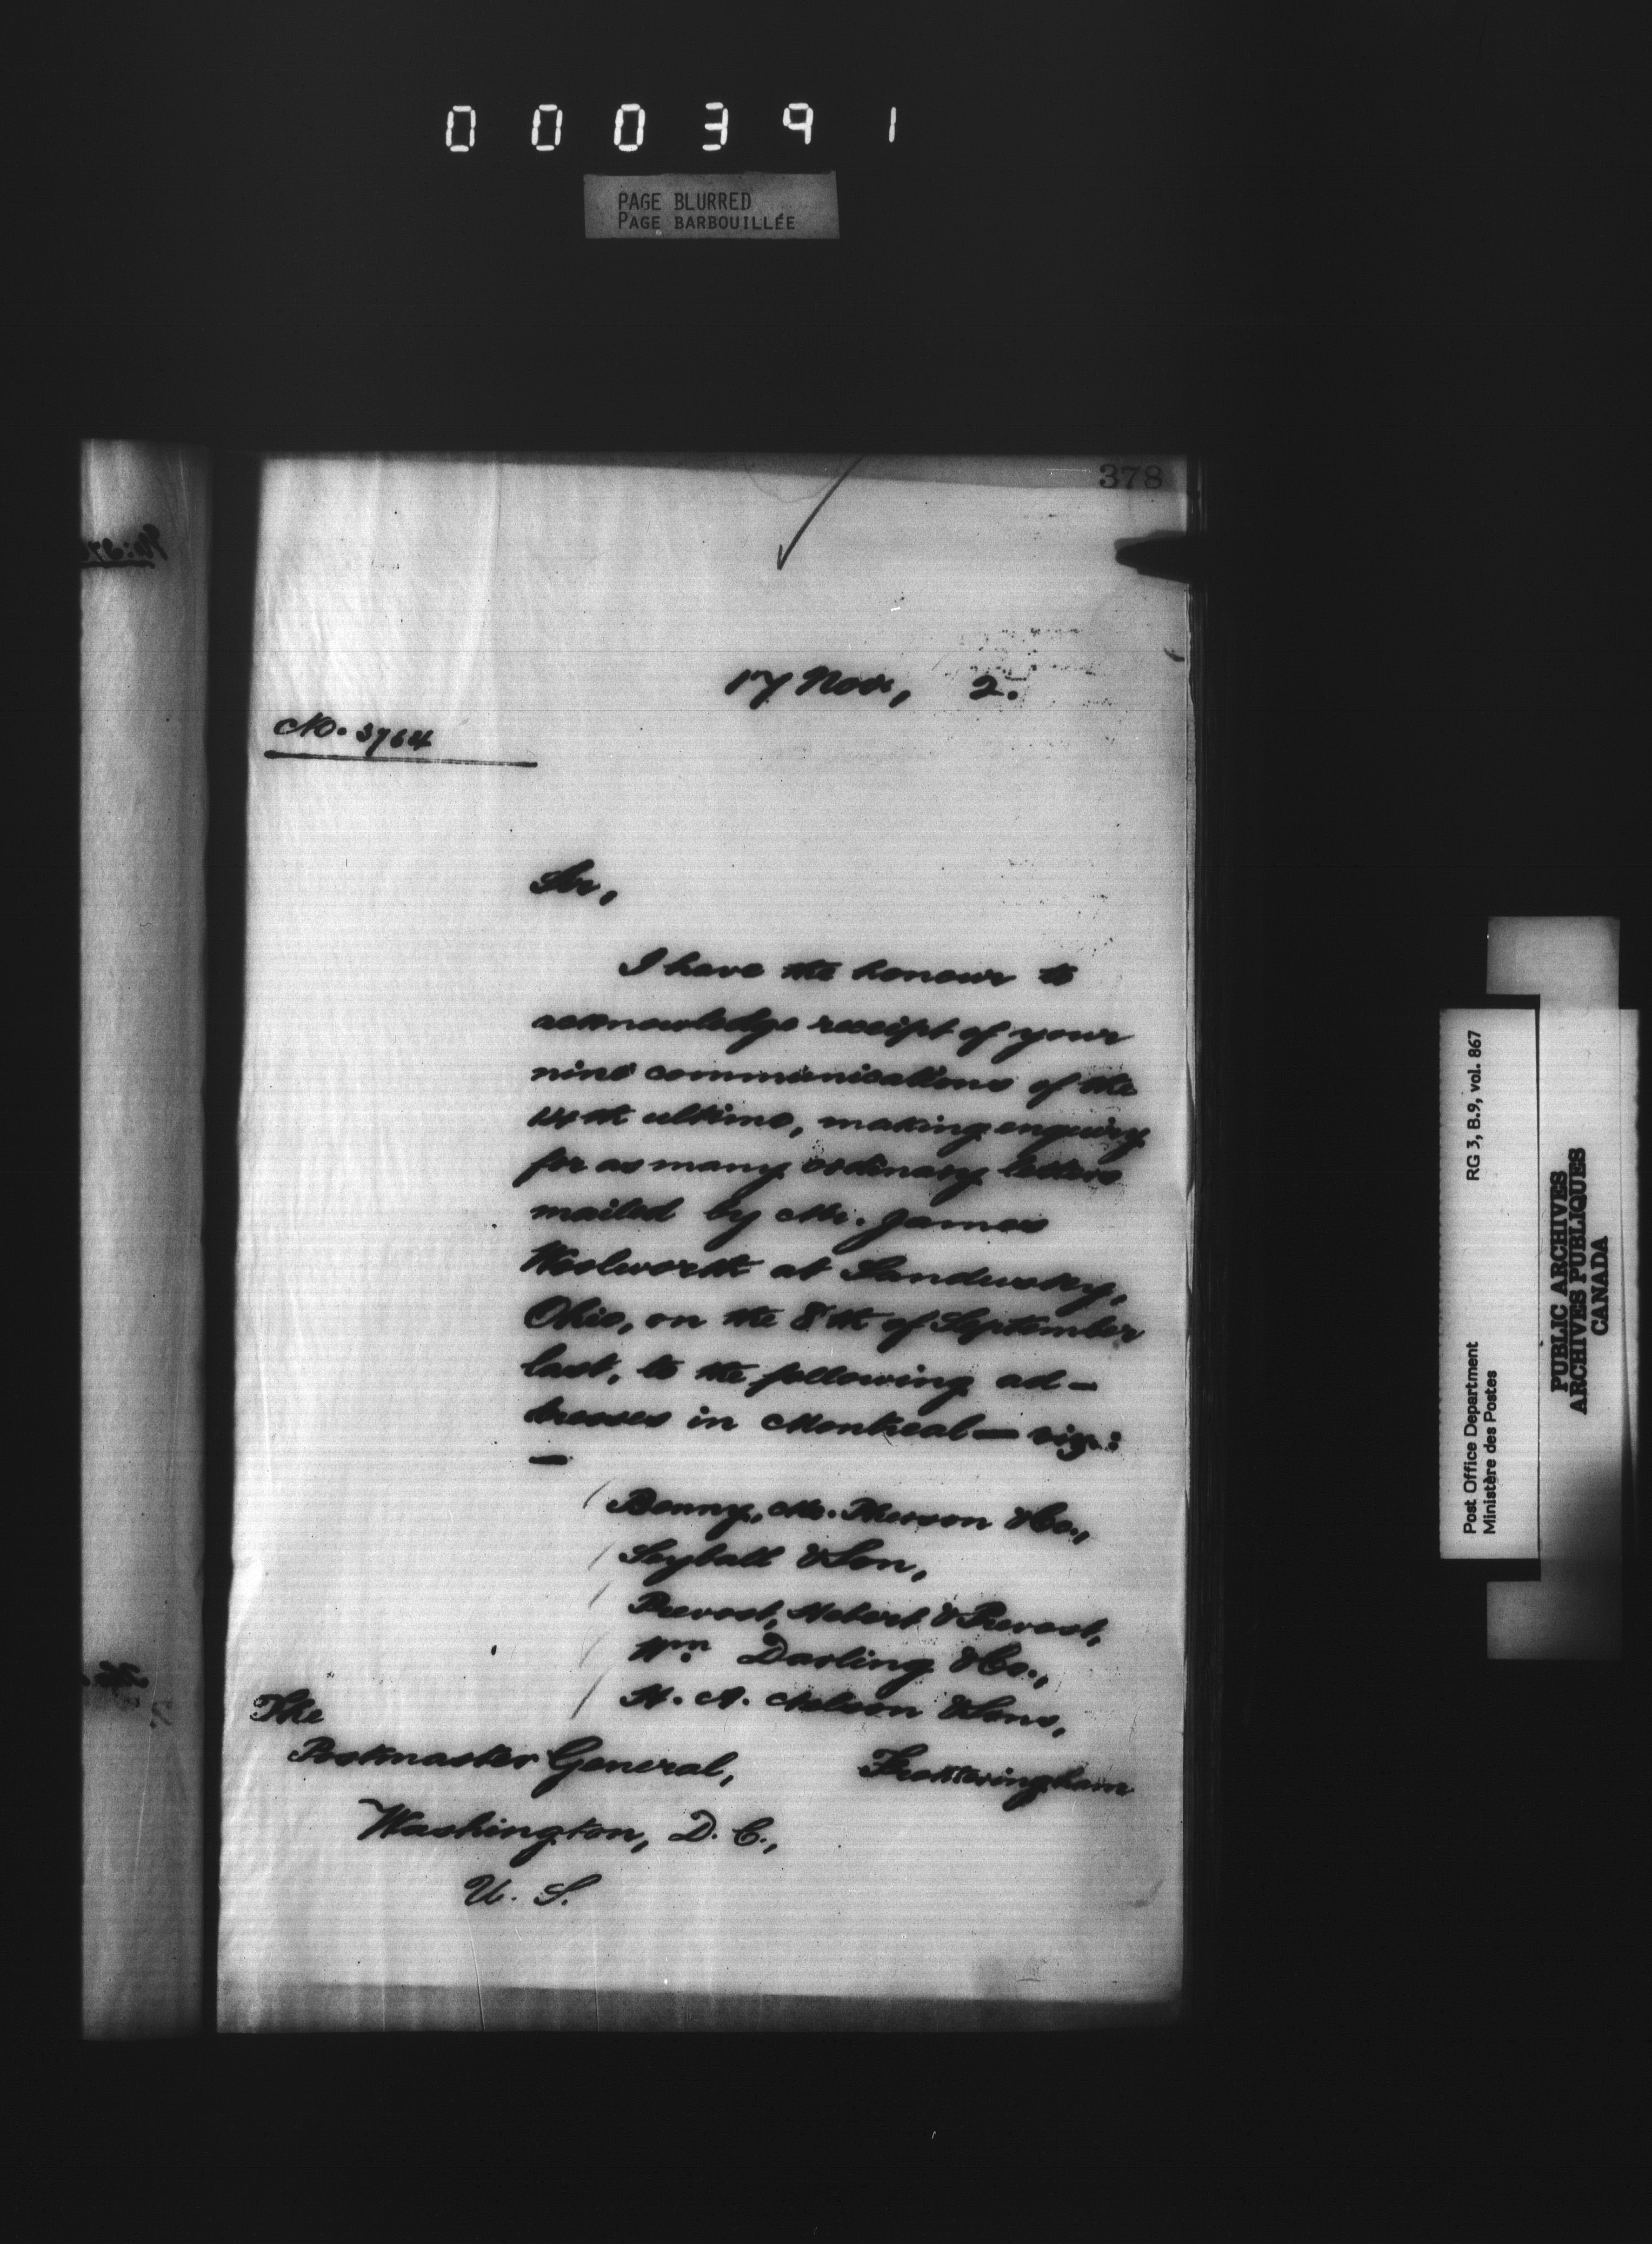 000391
PAGE BLURRED
PAGE BARBOUILLÉE
378
17 Nov., 2.
No. 3764
Sir,
I have the honour to
acknowledge receipt of your
nine communications of the
14th ultimo, making enquiry
for as many ordinary letters
mailed by Mr. James
Woolworth at Sandusky,
Ohio, on the 8th of September
last, to the following ad-
dresses in Montreal — viz:
—
Benny, Mc. Pherson & Co.,
Seybald & Son,
Prevost, Hebert & Prevost,
Wm. Darling & Co.,
H. A. Nelson & Sons,
Frothingham
The
Postmaster General,
Washington, D. C.,
U. S.
Post Office Department RG 3, B.9, vol. 867
Ministère des Postes
PUBLIC ARCHIVES
ARCHIVES PUBLIQUES
CANADA